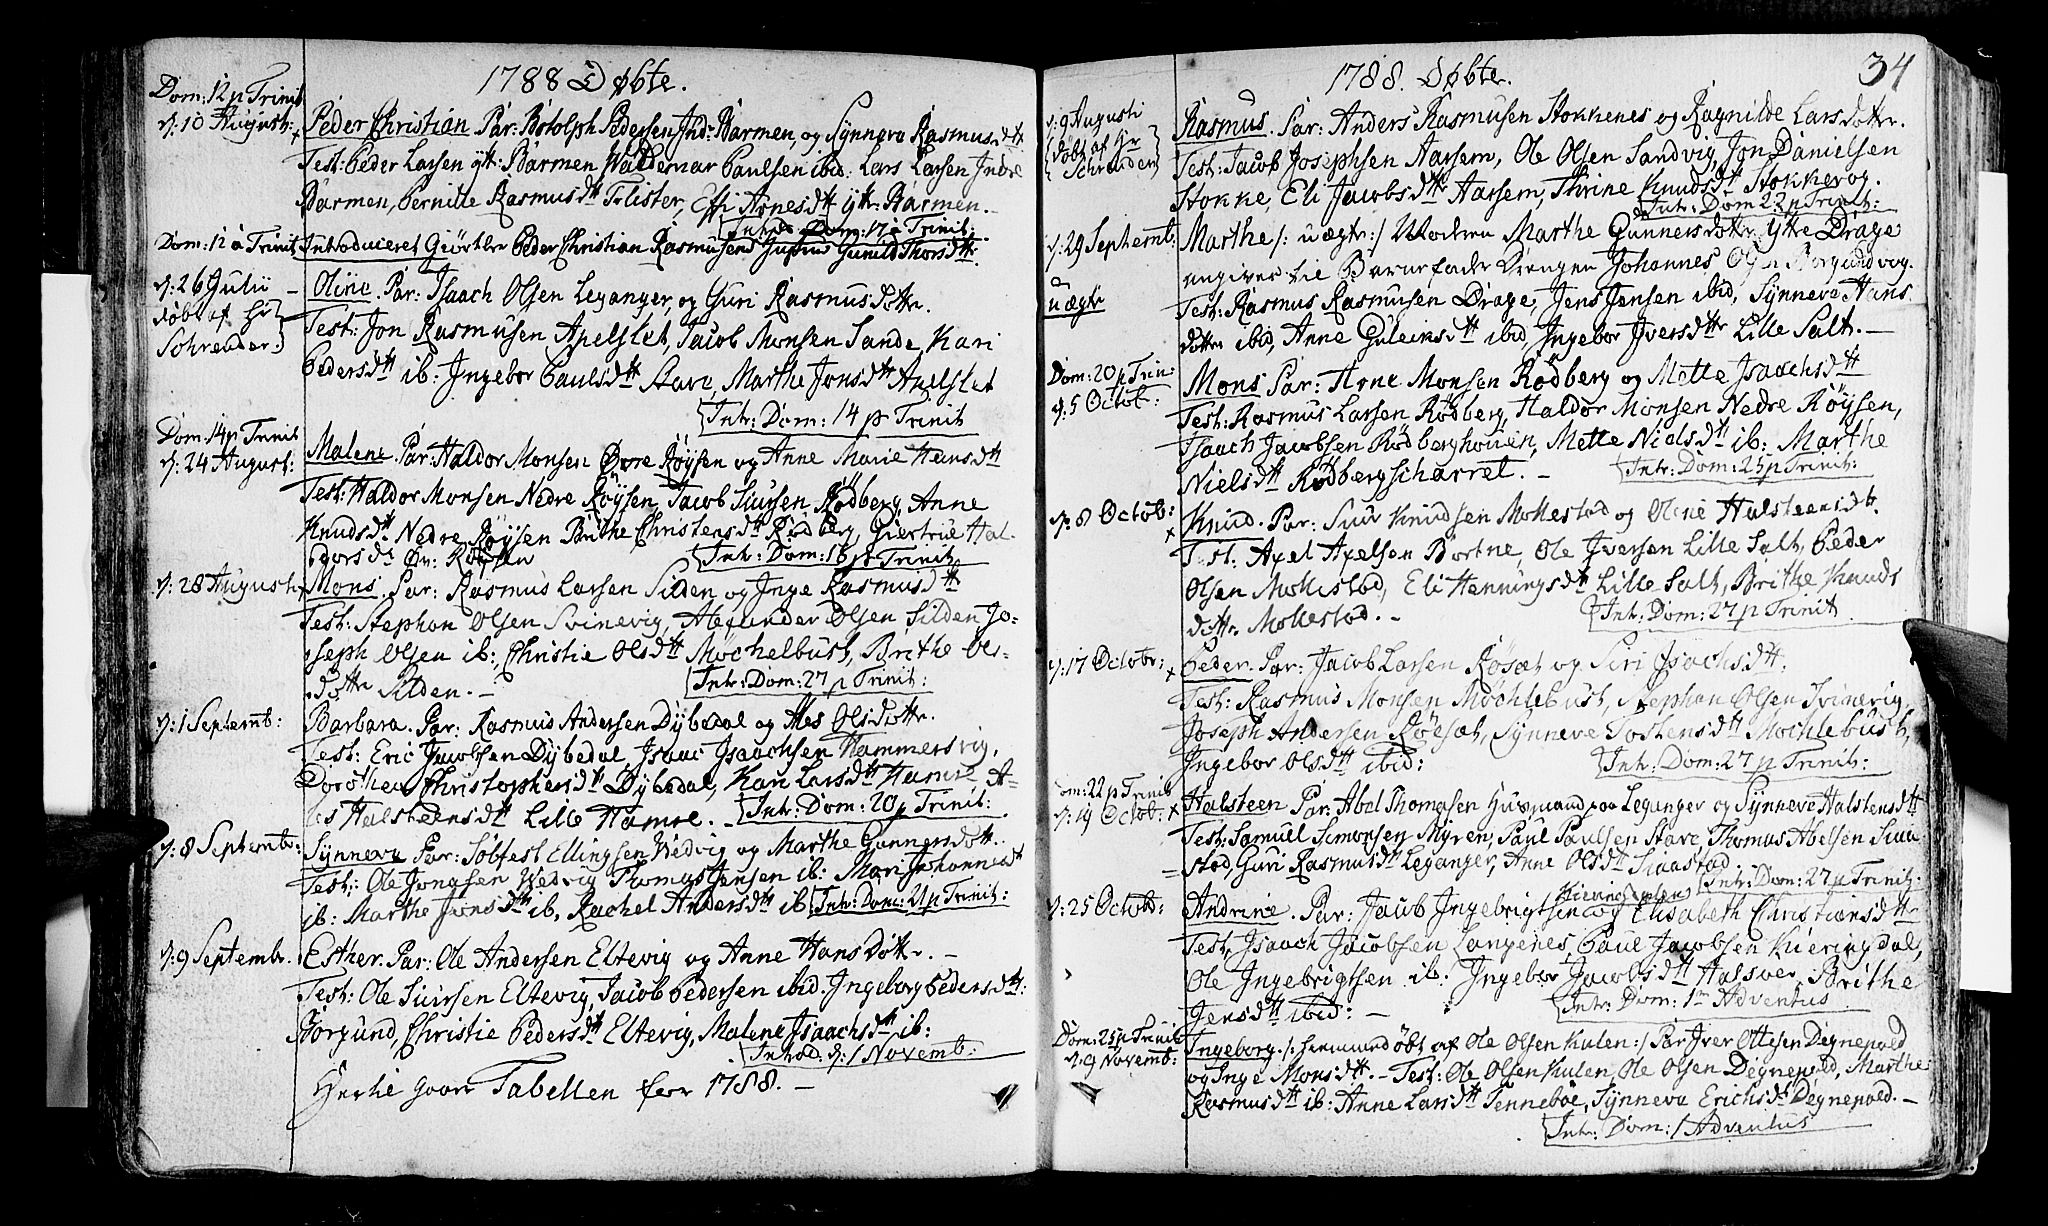 1788 Døbte.
Dom: 12 p Trinit
d: 10 August:
Peder Christian Par: Botolph Pedersen Ind: Barmen, og Synneva Rasmusdtt
Test: Peder Larsen ytt: Barmen Waldemar Paulsen ibid: Lars Larsen Indre
Barmen, Pernille Rasmusdtt Flister, Effi Arnesdtt yttr: Barmen. –
Introd: Dom: 17 à Trinit:
Dom: 12 à Trinit
Introduceret Giörtler Peder Christian Rasmusens Hustrue Gunild Thorsdtt.
d: 26 Julii –
døbt af Hr
Schreuder.
Oline. Par: Isaach Olsen Leganger, og Guri Rasmusdottr.
Test: Jon Rasmusen Apelslet, Jacob Monsen Sande, Kari
Pedersdtt ib: Ingebor Paulsdtt Stave, Marthe Jonsdtt Apelslet
Intr: Dom: 14 p Trinit
Dom: 14 p Trinit
d: 24 August:
Malene Par: Haldor Monsen Øvre Røysen og Anne Marie Hansdtt
Test: Haldor Monsen Nedre Røysen, Jacob Siursen Rödberg, Anne
Knudsdtt Nedre Røysen Brithe Christensdtt Rødberg, Giertrue Hal-
dorsdr Øv: Røysen
Intr: Dom: 16 p Trinit
d: 28 August
Mons. Par: Rasmus Larsen Silden og Inge Rasmusdtt
Test: Stephan Olsen Svinevig, Alexander Olsen Silden, Jo-
seph Olsen ib: Christie Olsdtt Møchelbust, Brithe Ols-
dottr Silden. –
Intr: Dom: 27 p Trinit:
d: 1 Septemb:
Barbara. Par: Rasmus Andersen Dybedal og Ales Olsdottr.
Test: Eric Jacobsen Dybedal, Isaac Isaachsen Hammersvig,
Dorothea Christophersdtt Dybedal, Kari Larsdtt Hamre A-
les Halsteensdtt Lille Hamre. –
Intr: Dom: 20 p Trinit:
d: 8 Septemb:
Synneva Par: Sölfest Ellingsen Wedvig og Marthe Gunnersdott.
Test: Ole Jonasen Wedvig Thomas Jensen ib: Mari Johannesdt
ib: Marthe Jonsdtt ib, Rachel Andersdtt ib
Intr: Dom: 21 p Trinit:
d: 9 Septembr.
Esther. Par: Ole Andersen Eltevig og Anne Hans Dottr. –
Test: Ole Siursen Eltevig, Jacob Pedersen ibid. Ingeborg Pedersdtt:
Borgund, Christie Pedersdtt Eltevig, Malene Isaachsdtt ib:
Introd. d: 1 Novemb:
Hertil gaar Tabellen for 1788. –
1788. Døbte.
34
d: 9 Augusti
døbt af Hr
Schreuder
Rasmus. Par: Anders Rasmusen Stokkenes og Ragnilde Larsdottr.
Test: Jacob Josephsen Aarsem, Ole Olsen Sandvig, Jon Danielsen
Stokke, Eli Jacobsdtt Aarsem, Thrine Knudsdtt Stokke og.
Intr: Dom 22 p Trinit:
d: 29 Septemb:
uægte
Marthe /: uægte :/ Moderen Marthe Gunnersdotter yttre Drage
angiver til Barnefader Drengen Johannes Olsen Borgundvog.
Test: Rasmus Rasmusen Drage, Jens Jensen ibid, Synneve Hans-
dottr ibid, Anne Guleiksdtt ibid, Ingebor Iversdttr Lille Salt. –
Dom: 20 p Trin:
d: 5 Octob:
Mons Par: Arne Monsen Rödberg og Mette Isaachsdtt
Test: Rasmus Larsen Rødberg, Haldor Monsen Nedre Røysen,
Isaach Jacobsen Rödberghouen, Mette Nielsdtt ib: Marthe
Nielsdtt Rødbergscharret. –
Intr: Dom: 25 p Trinit:
d: 8 Octob:
Knud. Par: Siur Knudsen Mollestad og Oline Halsteensdtt.
Test: Axel Axelsen Bortne, Ole Iversen Lille Salt, Peder
Olsen Mollestad, Eli Henningsdtt Lille Salt, Brithe Knuds
dottr Mollestad. –
Intr: Dom: 27 p Trinit
d: 17 Octobr:
Peder. Par: Jacob Larsen Røsæt og Siri Isachsdtt.
Test: Rasmus Monsen Mochlebust, Stephan Olsen Svinevig
Joseph Andersen Røesæt, Synneve Tostensdtt Mochlebust,
Ingebor Olsdtt ibid:
Intr: Dom: 27 p Trinit:
Dom: 22 p Trinit
d: 19 Octob:
Halsteen Par: Abel Thomasen Huusmand paa Leganger og Synneve Halstensdtt
Test: Samuel Simonsen Myren, Paul Paulsen Stave, Thomas Abelsen Siaa-
stad, Guri Rasmusdtt Leganger, Anne Olsdtt Siaastad.
Intr: Dom: 27 p Trinit:
d: 25 Octob:
Andrine. Par: Jacob Ingebrigtsen og Elisabeth Christiansdtt
Test: Isaach Jacobsen Langenes Paul Jacobsen Kieringdal,
Ole Ingebrigtsen ib. Ingebor Jacobsdtt Halsør, Brithe
Jensdtt ibid: –
Intr: Dom: 1 Adventus
Dom: 25 p Trinit
d: 9 Novemb:
Ingeborg. /: hiemmedøbt af Ole Olsen Kulen :/ Par Iver Ottesen Degnepold
og Inge Monsdtt. – Test: Ole Olsen Kulen, Ole Olsen Degnepold, Marthe
Rasmusdtt ib: Anne Larsdtt Tenneböe, Synneva Erichsdt Degnepold. –
Intr: Dom: 1 Adventus